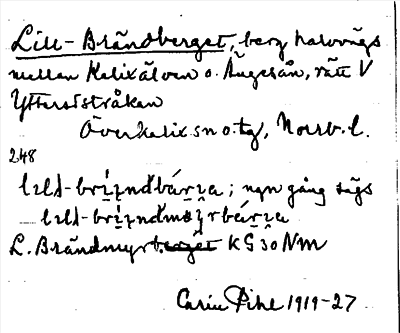 Lill-Brändberget, berg halvvägs
mellan Kalixälven o. Ängesån, rätt V
Ytterststråkan
Överkalix sn o. tg, Norrb. l.
248
; ngn gång sägs
L. Brändmyrberget KG30 NM
Carin Pihl 1919-27